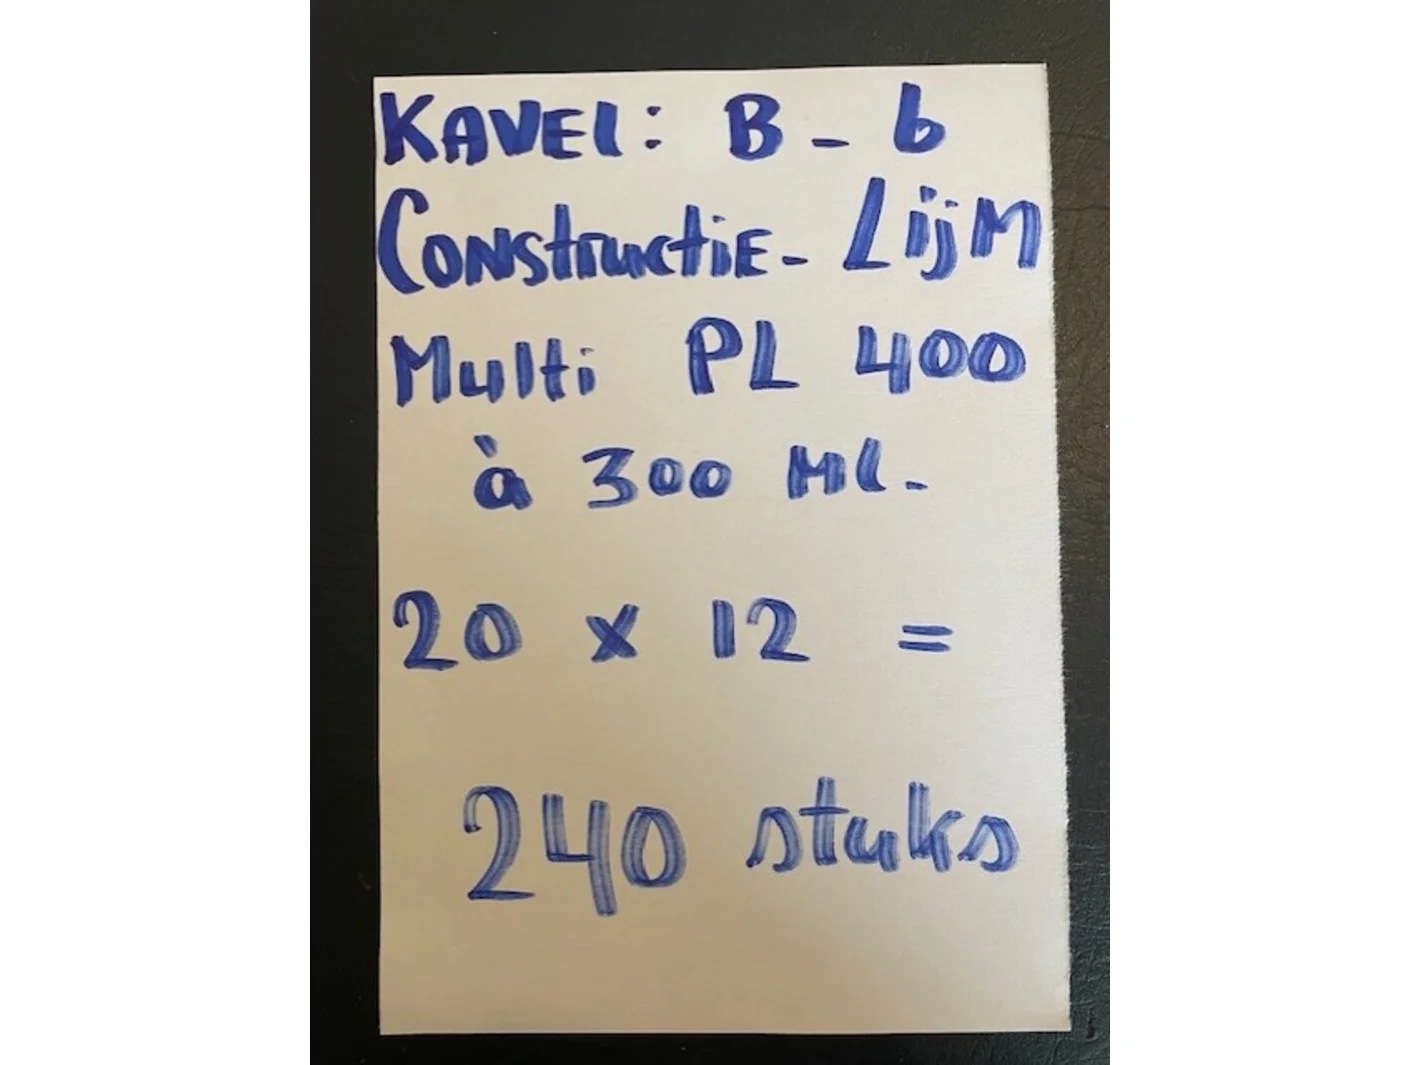 KAVEL: B - b
CONStructiE - LijM
Multi PL 400
à 300 ML.
20 x 12 =
240 stuks